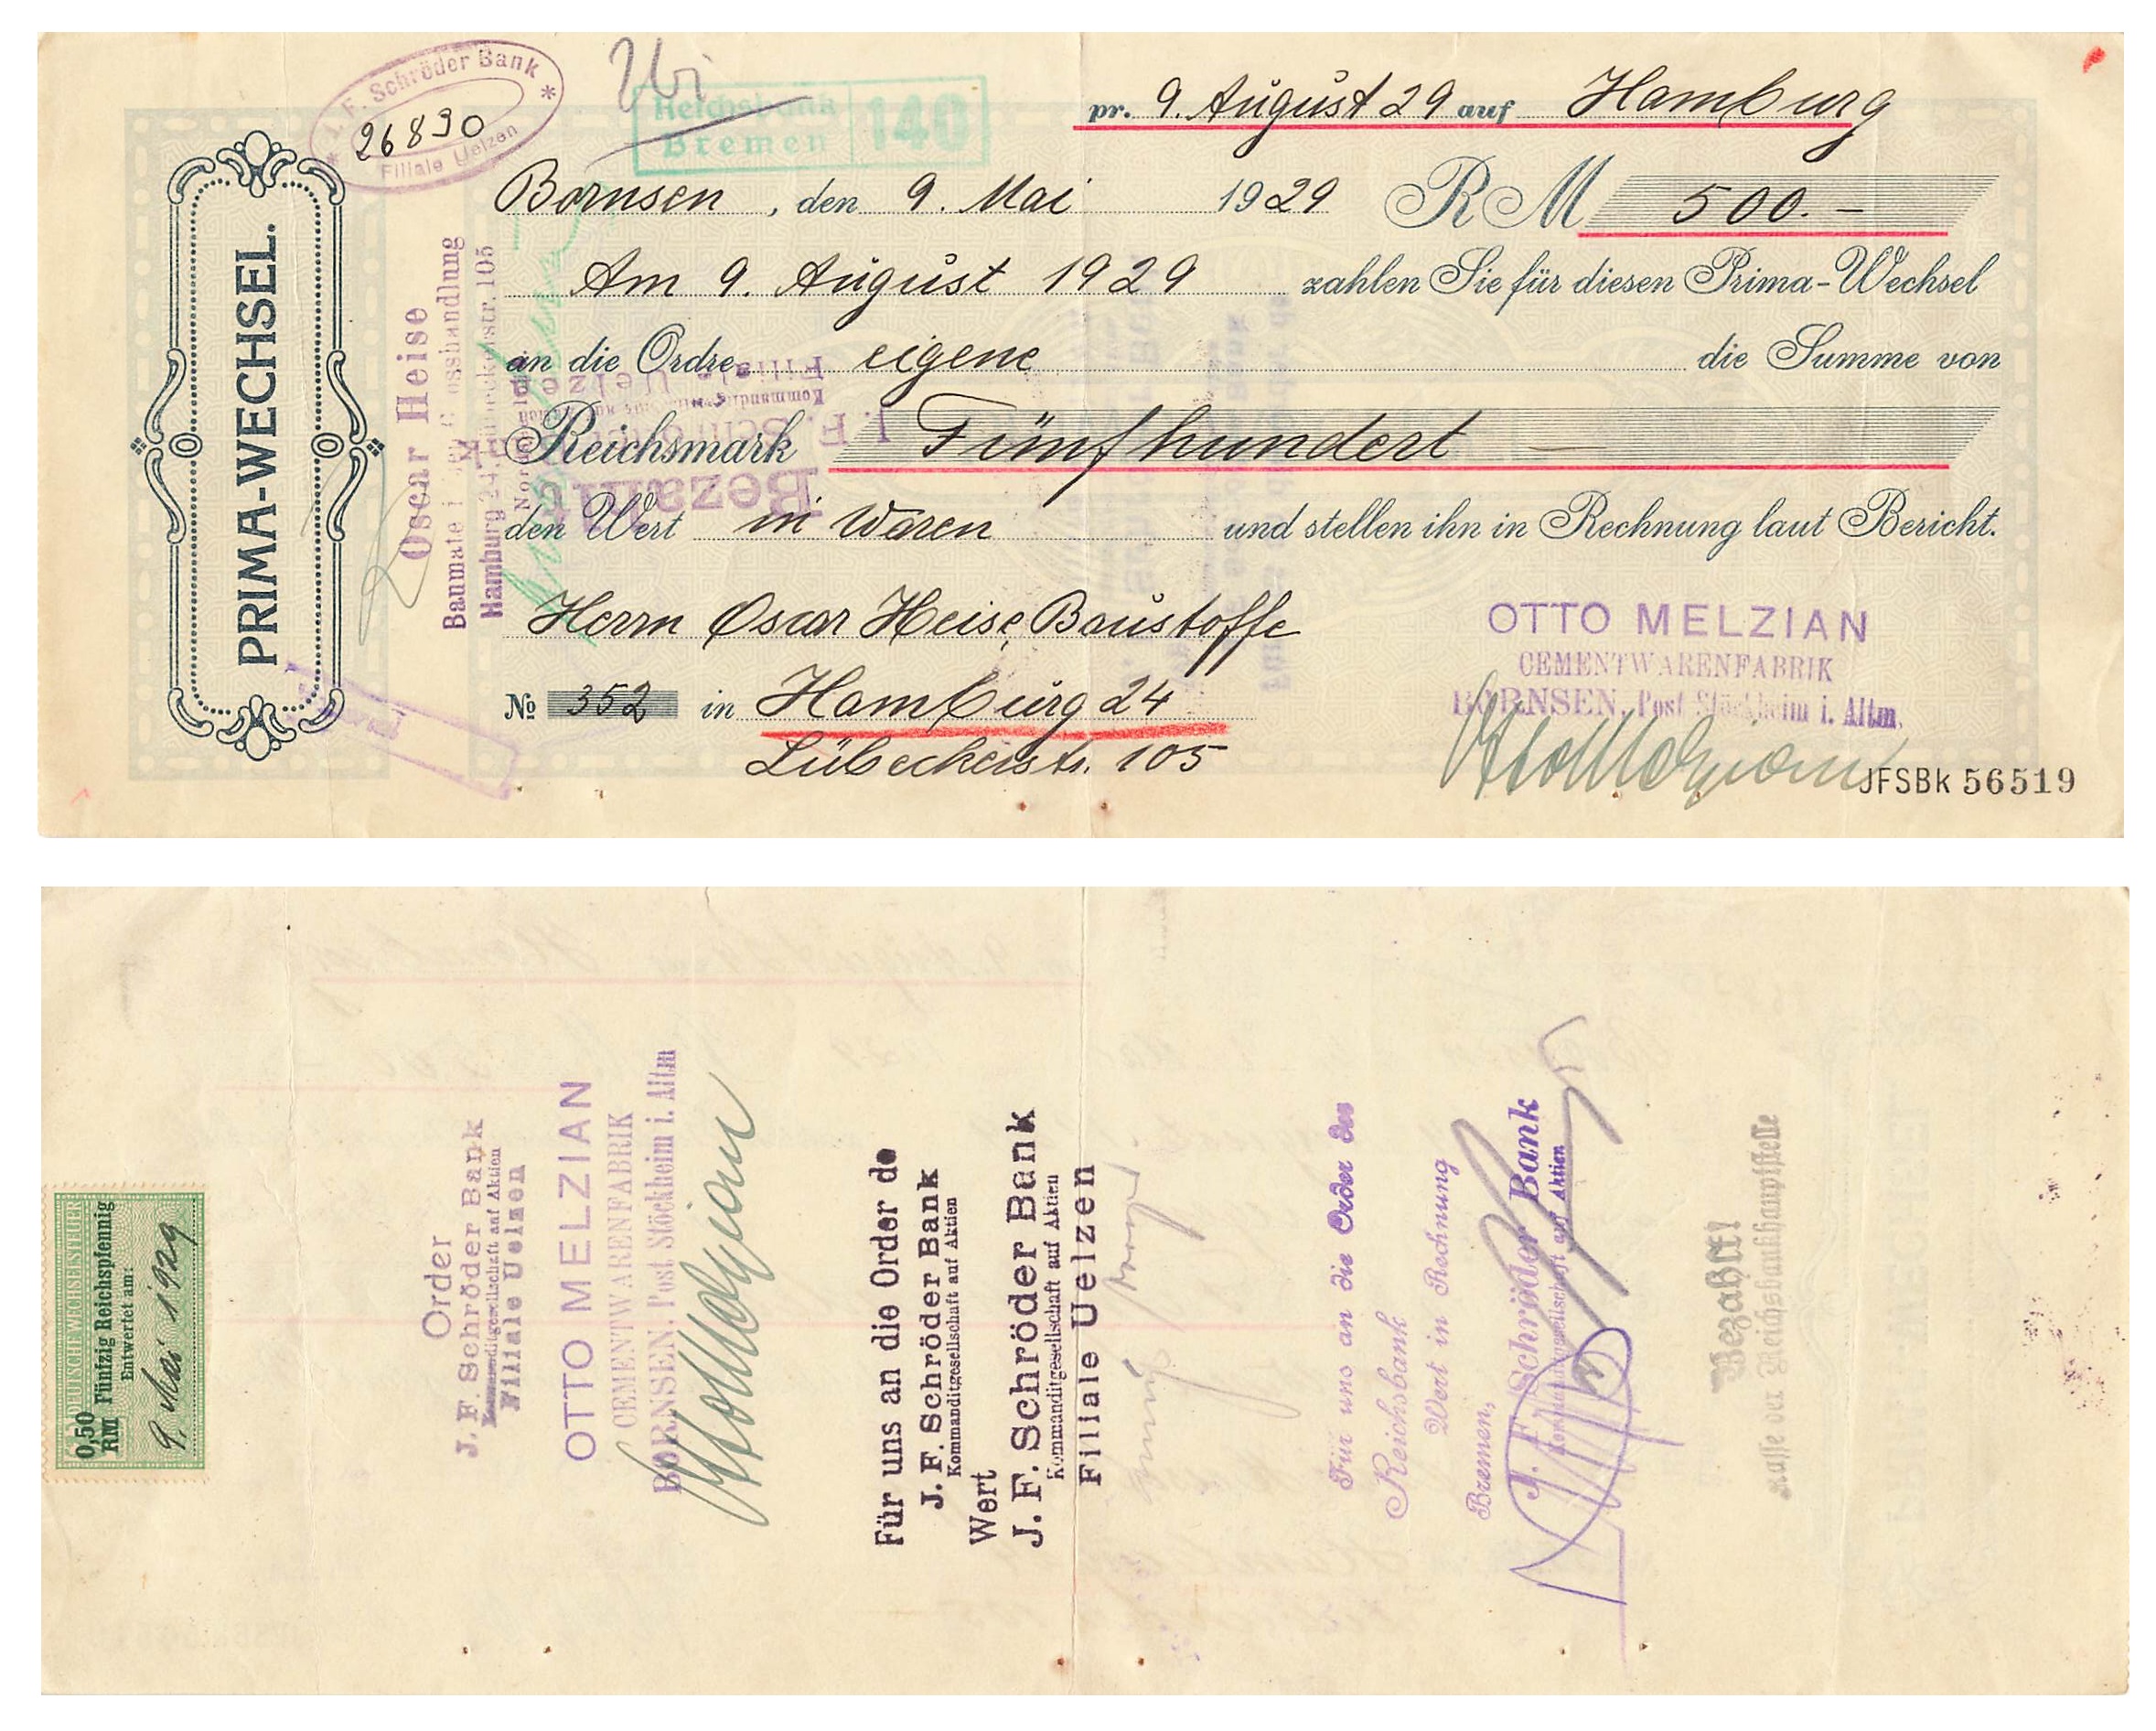 J. F. Schröder Bank
26830
Filiale Uelzen
Reichsbank
Bremen
140
pr. 9. August 29 auf Hamburg
Bornsen, den 9. Mai 1929 RM 500.-
Am 9. August 1929 zahlen Sie für diesen Prima-Wechsel
an die Ordre eigene die Summe von
Reichsmark Fünfhundert
den Wert in Waren und stellen ihn in Rechnung laut Bericht.
Herrn Oscar Heise, Baustoffe
No 352 in Hamburg 24
Lübeckerstr. 105
PRIMA-WECHSEL.
Oscar Heise
Hamburg 24, 105
Bezahlt
J. F. Schröder
Filiale Uelzen
OTTO MELZIAN
CEMENTWARENFABRIK
BORNSEN, Post Stöckheim i. Altm.
Otto Melzian
JFSBk 56519
DEUTSCHE WECHSELSTEUER
0,50
RM
Fünfzig Reichspfennig
Entwertet am:
9. Mai 1929
Order
J. F. Schröder Bank
Kommanditgesellschaft auf Aktien
Filiale Uelzen
OTTO MELZIAN
CEMENTWARENFABRIK
BORNSEN, Post Stöckheim i. Altm
Otto Melzian
Für uns an die Order de
J. F. Schröder Bank
Kommanditgesellschaft auf Aktien
Wert
J. F. Schröder Bank
Kommanditgesellschaft auf Aktien
Filiale Uelzen
Für uns an die Order der
Reichsbank
Wert in Rechnung
Bremen,
J. F. Schröder Bank
Kommanditgesellschaft auf Aktien
Bezahlt!
Kasse der Reichsbankhauptstelle